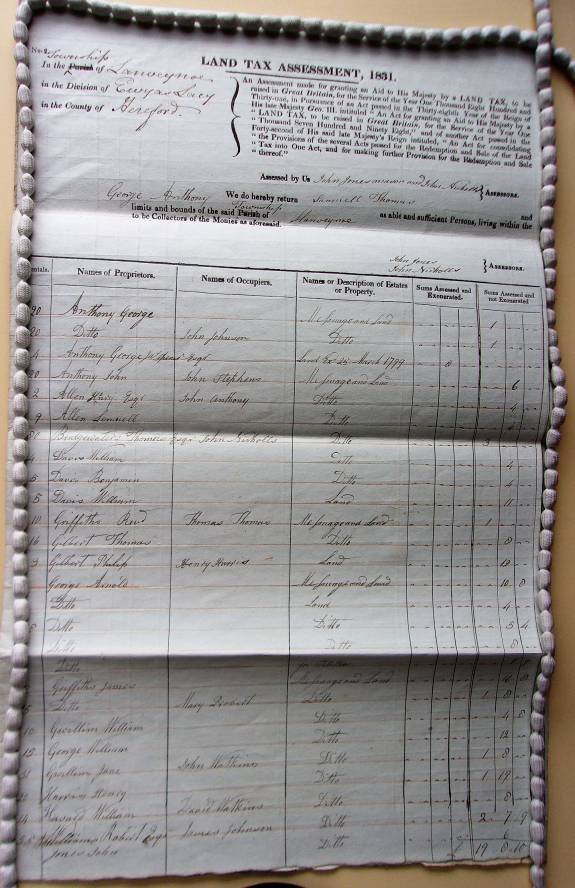 No. 2.
Township
LAND TAX ASSESSMENT, 1831.
In the Parish of Lanveynoe
in the Division of Ewyas Lacy
in the County of Hereford.
An Assessment made for granting an Aid to His Majesty by a LAND TAX, to be
raised in Great Britain, for the Service of the Year One Thousand Eight Hundred and
Thirty-one, in Pursuance of an Act passed in the Thirty-eighth Year of the Reign of
His late Majesty Geo. III. intituled "An Act for granting an Aid to His Majesty by a
"LAND TAX, to be raised in Great Britain, for the Service of the Year One
"Thousand Seven Hundred and Ninety Eight," and of another Act passed in the
Forty-second of His said late Majesty's Reign intituled, "An Act for consolidating
"the Provisions of the several Acts passed for the Redemption and Sale of the Land
"Tax into One Act, and for making further Provision for the Redemption and Sale
"thereof."
Assessed by Us John Jones mason and John Nicholls ASSESSORS.
George Anthony We do hereby return Samuell Thomas and
Township
limits and bounds of the said Parish of Llanveynoe as able and sufficient Persons, living within the
to be Collectors of the Monies as aforesaid.
John Jones
John Nicholls ASSESSORS.
entals. Names of Proprietors. Names of Occupiers. Names or Description of Estates or Property. Sums Assessed and Exonerated. Sums Assessed and not Exonerated
Anthony George Messuage and Land 1
20 Ditto John Johnson Ditto 1
4 Anthony George Esqr Land Ex 25 March 1799
20 Anthony John John Stephens Messuage and Land 6
2 Allen Esqr John Anthony Ditto 4
9 Allen Samuell Ditto 4
Thomas Esqr John Nicholls Ditto
4 Davis William Ditto 4
5 Davis Benjamin Ditto 4
5 Davis William Land 11
10 Griffiths Revd Thomas Thomas Messuage and Land 1
16 Gilbert Thomas Ditto 8
3 Gilbert Philip Henry Land
George Arnold Messuage and Land 10 8
Ditto Land 4
8 Ditto Ditto 5 4
Ditto Ditto 8
Ditto
Griffiths James Messuage and Land
Ditto Mary Probert Ditto 1 8
Ditto 4 8
10 Gwillim William Ditto 12
15 George William Ditto 1 8
Gwillim Jane John Watkins Ditto 1 19
Henry Ditto 8
14 William David Watkins Ditto 2 7 9
Williams Robert Esqr James Johnson Ditto
Jones John Ditto